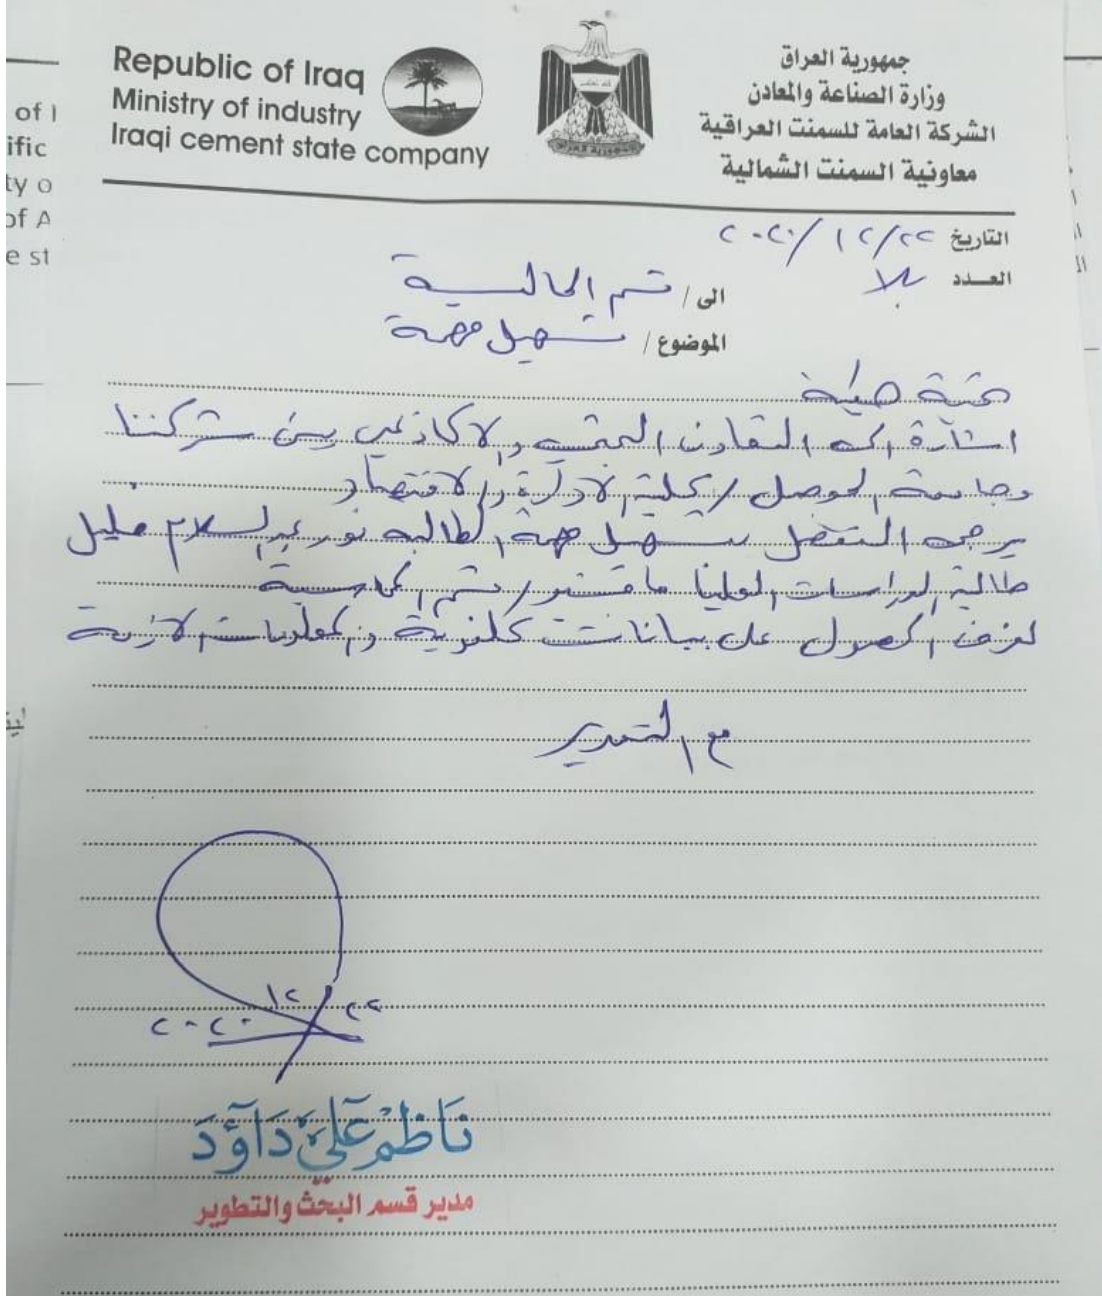 Republic of Iraq
Ministry of industry
Iraqi cement state company
جمهورية العراق
وزارة الصناعة والمعادن
الشركة العامة للسمنت العراقية
معاونية السمنت الشمالية
التاريخ ٢٢/ ١٢/ ٢٠٢٠
العدد بلا
الى / قسم المالية
الموضوع / تسهيل مهمة
تحية طيبة
اشارة الى التعاون البحثي والاكاديمي بين شركتنا
وجامعة الموصل / كلية الادارة والاقتصاد
يرجى التفضل بتسهيل مهمة الطالبة نور عبدالسلام خليل
طالبة الدراسات العليا ماجستير / قسم المحاسبة
لغرض الحصول على بيانات كلفوية والمعلومات لازمة
مع التقدير
٢٢
١٢
٢٠٢٠
ناظم علي داؤد
مدير قسم البحث والتطوير
of I
ific
ty o
of A
e st